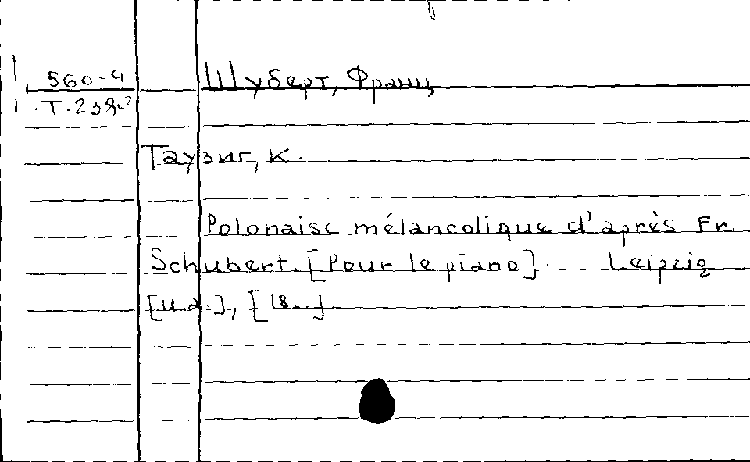 560-4
Шуберт, Франц
Таузиг, К.
Polonaise mélancolique d'après Fr
Schubert. [Pour le piano] Leipzig
[и.д.], [18..]